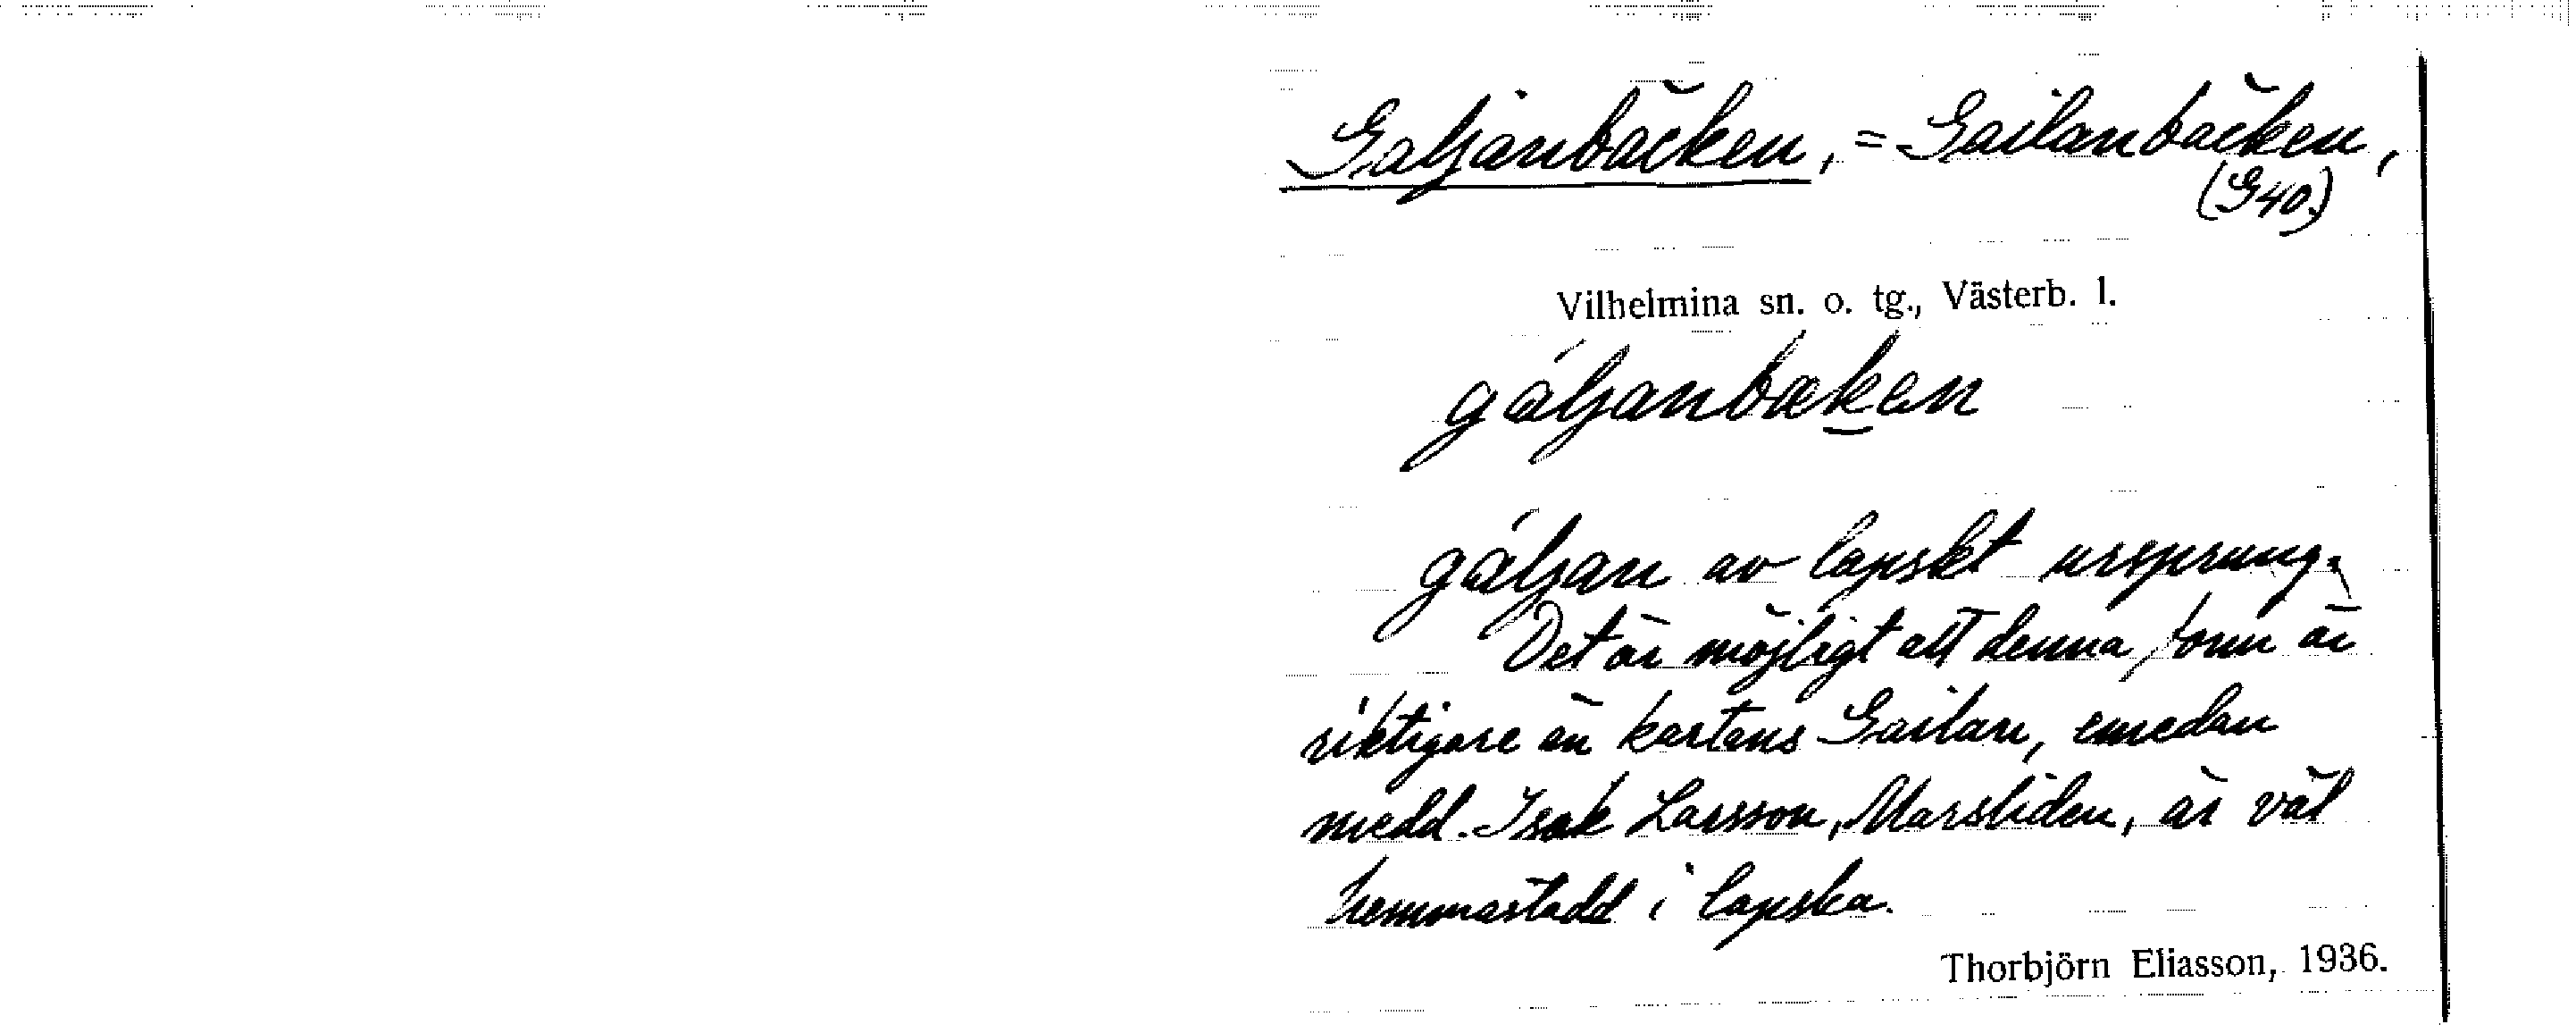 Galjanbäcken, = Gailanbäcken,
(G40.)
Vilhelmina sn. o. tg., Västerb. l.
gáljanbæken
gáljan av lapskt ursprung.
Det är möjligt att denna form är
riktigare än kartans Gailan, emedan
medd. Isak Larsson, Marsliden, är väl
hemmastadd i lapska.
Thorbjörn Eliasson, 1936.